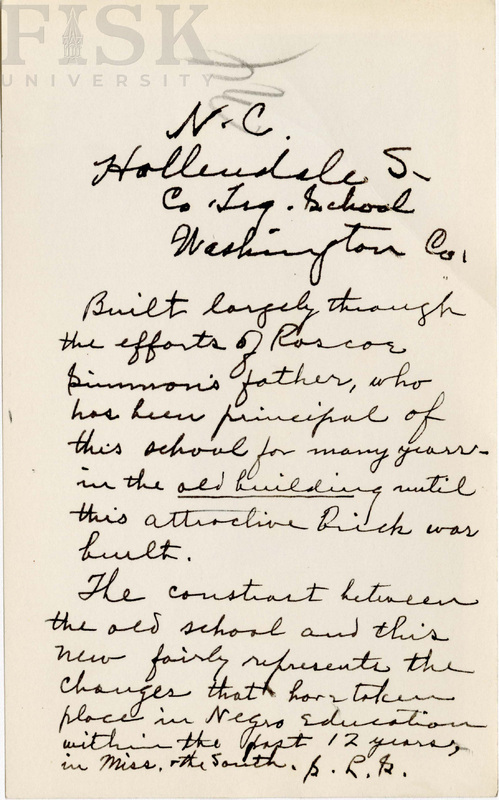 FISK
UNIVERSITY
N.C.
Hollendale S.
Co. Trg. School
Washington Co.
Built largely through
the efforts of Roscoe
Simmon's father, who
has been principal of
this school for many years -
in the old building until
this attractive brick was
built.
The contrast between
the old school and this
new fairly represents the
changes that have taken
place in Negro Education
within the past 12 years,
in Miss. & the South. S. L. S.